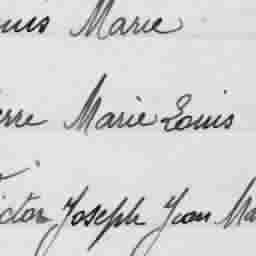 uis Marie
erre Marie Louis
ictor Joseph Jean Ma